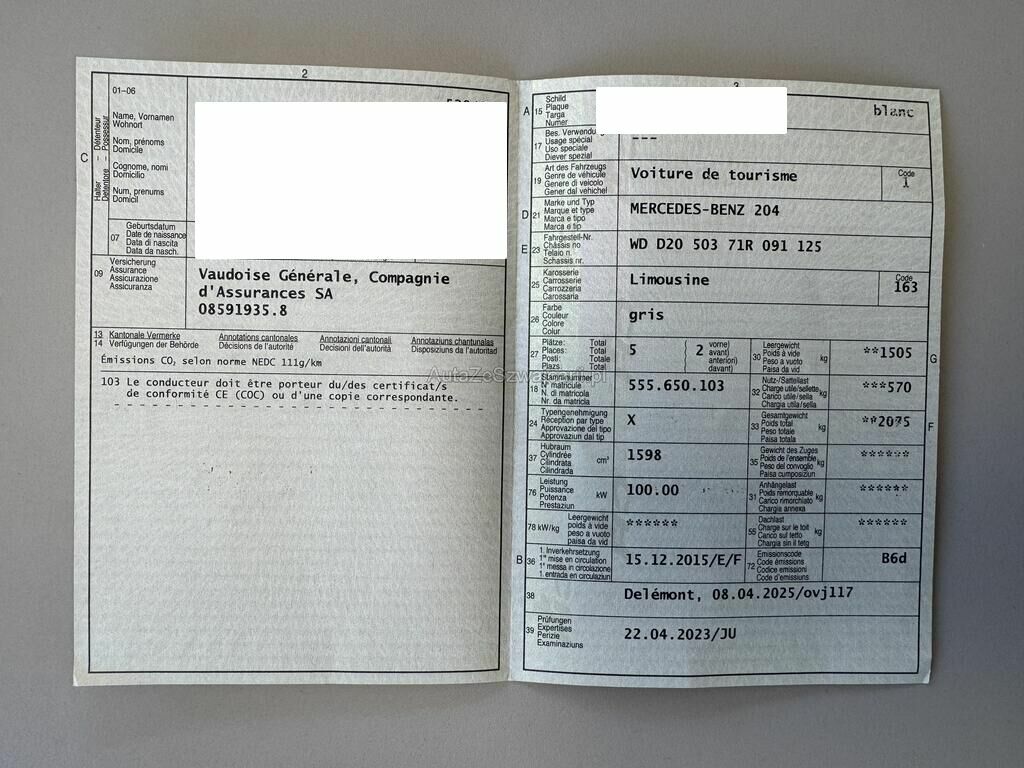 2
01-06
Name, Vornamen
Wohnort
Nom, prénoms
Domicile
Cognome, nomi
Domicilio
Num, prenums
Domicil
C
Halter – Détenteur
Detentore – Possessur
07
Geburtsdatum
Date de naissance
Data di nascita
Data da nasch.
09
Versicherung
Assurance
Assicurazione
Assicuranza
Vaudoise Générale, Compagnie
d'Assurances SA
08591935.8
13 Kantonale Vermerke Annotations cantonales Annotazioni cantonali Annotaziuns chantunalas
14 Verfügungen der Behörde Décisions de l'autorité Decisioni dell'autorità Disposiziuns da l'autoritad
Émissions CO2 selon norme NEDC 111g/km
103 Le conducteur doit être porteur du/des certificat/s
de conformité CE (COC) ou d'une copie correspondante.
AutaZeSzwajcarii.pl
3
A 15
Schild
Plaque
Targa
Numer
blanc
17
Bes. Verwendung
Usage spécial
Uso speciale
Diever spezial
---
19
Art des Fahrzeugs
Genre de véhicule
Genere di veicolo
Gener dal vehichel
Voiture de tourisme
Code
1
D 21
Marke und Typ
Marque et type
Marca e tipo
Marca e tip
MERCEDES-BENZ 204
E 23
Fahrgestell-Nr.
Châssis no
Telaio n.
Schassis nr.
WD D20 503 71R 091 125
25
Karosserie
Carrosserie
Carrozzeria
Carossaria
Limousine
Code
163
26
Farbe
Couleur
Colore
Colur
gris
27
Plätze: Total
Places: Total
Posti: Totale
Plazs: Total
5
2
vorne)
avant)
anteriori)
davant)
30
Leergewicht
Poids à vide
Peso a vuoto
Paisa da vid
kg
**1505
G
18
Stammnummer
N° matricule
N. di matricola
Nr. da matricla
555.650.103
32
Nutz-/Sattellast
Charge utile/sellette
Carico utile/sella
Chargia utila/sella
kg
***570
24
Typengenehmigung
Réception par type
Approvazione del tipo
Approvaziun dal tip
X
33
Gesamtgewicht
Poids total
Peso totale
Paisa totala
kg
**2075
F
37
Hubraum
Cylindrée
Cilindrata
Cilindrada
cm³
1598
35
Gewicht des Zuges
Poids de l'ensemble
Peso del convoglio
Paisa cumposiziun
kg
******
76
Leistung
Puissance
Potenza
Prestaziun
kW
100.00
31
Anhängelast
Poids remorquable
Carico rimorchiato
Chargia annexa
kg
******
78 kW/kg
Leergewicht
poids à vide
peso a vuoto
paisa da vid
******
55
Dachlast
Charge sur le toit
Carico sul tetto
Chargia sin il tetg
kg
******
B 36
1. Inverkehrsetzung
1re mise en circulation
1a messa in circolazione
1. entrada en circulaziun
15.12.2015/E/F
72
Emissionscode
Code émissions
Codice emissioni
Code d'emissiuns
B6d
38
Delémont, 08.04.2025/ovj117
39
Prüfungen
Expertises
Perizie
Examinaziuns
22.04.2023/JU